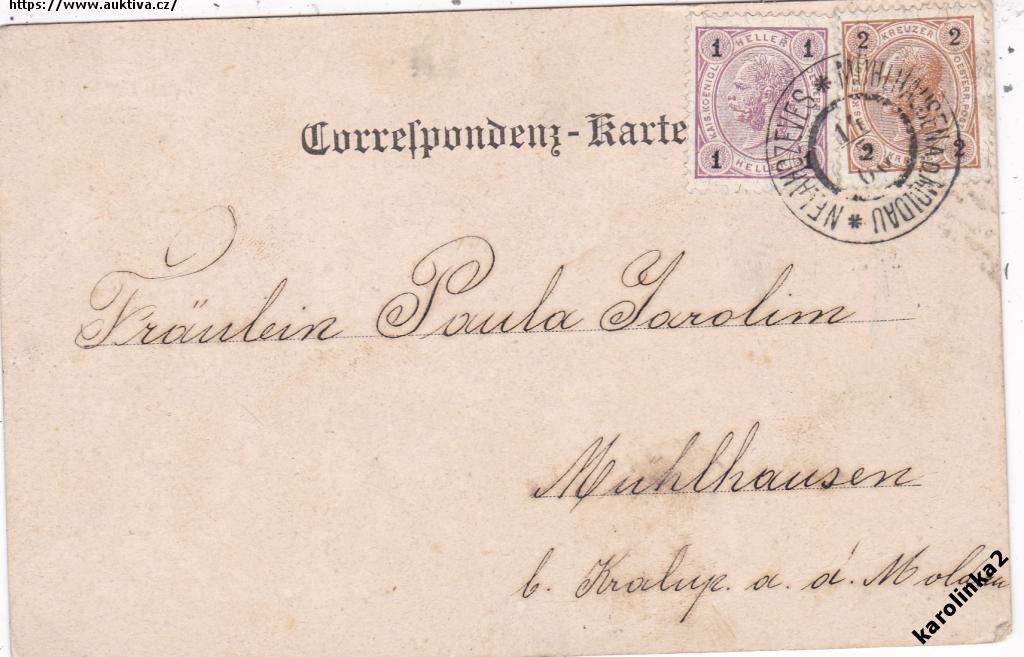 https://www.auktiva.cz/
Correspondenz-Karte
1 HELLER 1
KAIS. KOENIGL.
1 HELLER 1
2 KREUZER 2
OESTERR. POST
2 2
NELAHOZEVES * MÜHLHAUSEN A.D. MOLDAU *
Fräulein Paula Jarolim
Mühlhausen
b. Kralup. a. d. Moldau
karolinka2